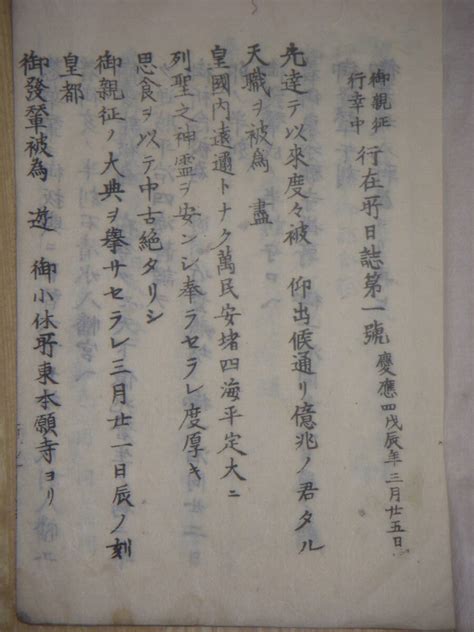 御親征
行幸中
行在所日誌第一號 慶應四戊辰年三月廿五日
先達テ以来度々被 仰出候通リ億兆ノ君タル
天職ヲ被為 盡
皇國内遠邇トナク萬民安堵四海平定大ニ
列聖之神霊ヲ安ンシ奉ラセラレ度厚キ
思食ヲ以テ中古絶タリシ
御親征ノ大典ヲ擧サセラレ三月廿一日辰ノ刻
皇都
御發輦被為 遊 御小休所東本願寺ヨリ